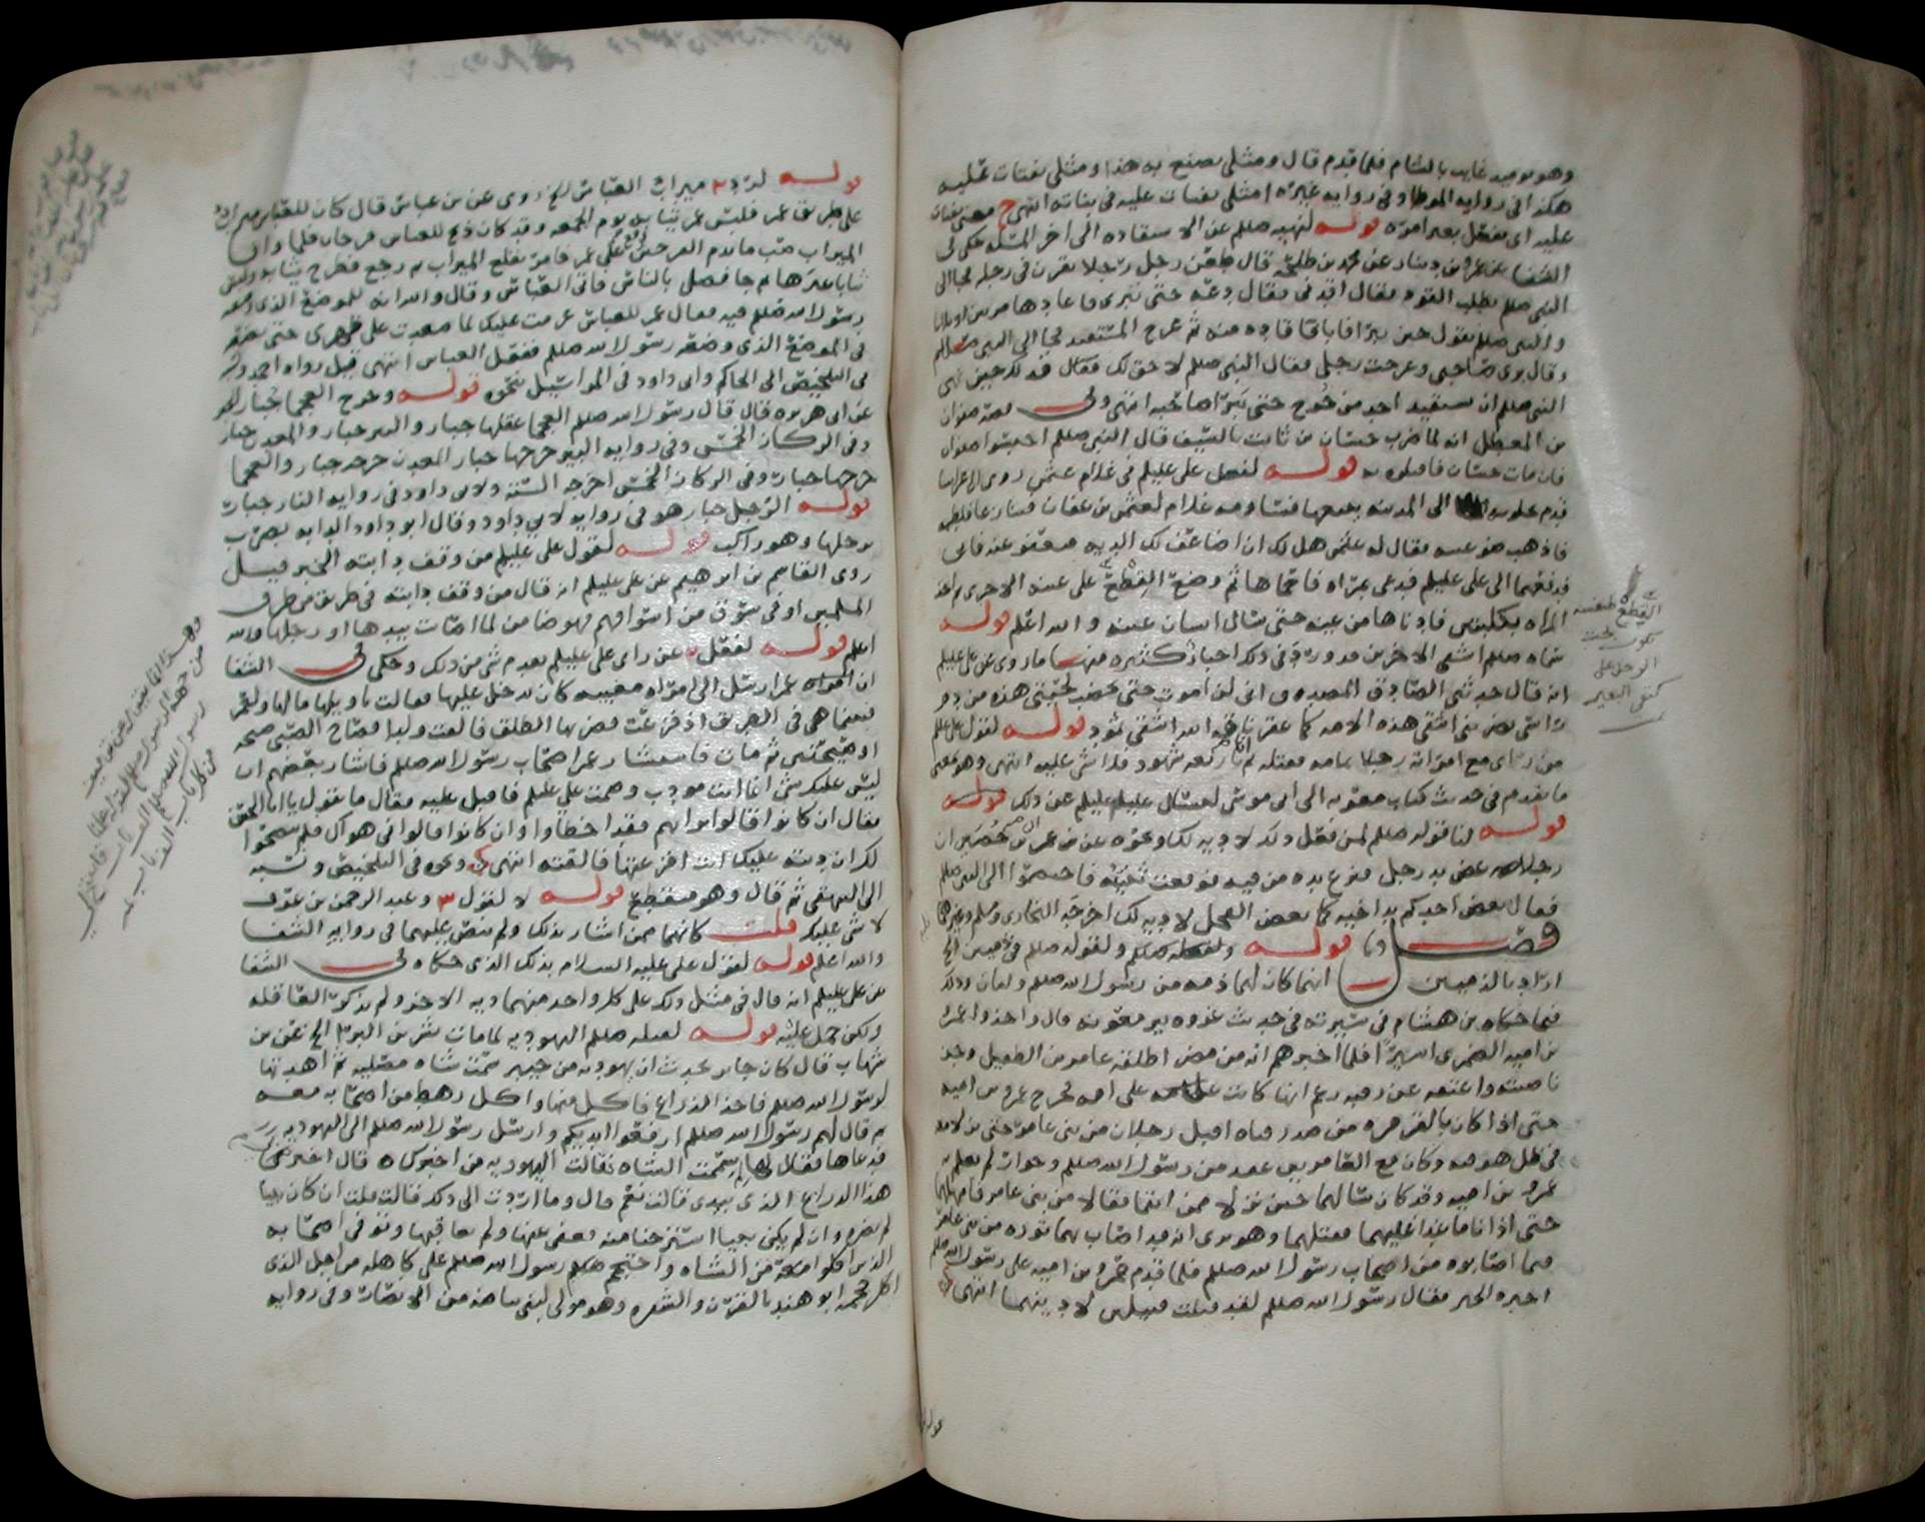 وهو يوميد غايب بالشام فلما قدم قال ومثلي يصنع به هذا ومثلي يفتات عليه
هكذا في روايه الموطا وفي روايه غيره امثلي يفتات عليه في بناته انتهى معنى يفتات
عليه اي يفعل بغير امره قوله لنهيه صللم عن الاستقاده الى اخر المسله حكى في
الشفا عن عمرو بن دينار عن محمد بن طلحه قال طعن رجل رجلا بقرن في رجله فجا الى
النبي صللم يطلب القود فقال اقدني فقال دعه حتى تبرى فاعادها مرتين او ثلاثا
والنبي صللم يقول حتى تبرا فابا فاقاده منه ثم عرج المستقيد فجا الى النبي صللم
وقال برى صاحبي وعرجت رجلي فقال النبي صللم لا حق لك فقال فذلك حين نهى
النبي صللم ان يستقيد احد من جرح حتى يبرا صاحبه انتهى وفي قصه صفوان
بن المعطل انه لما ضرب حسان بن ثابت بالسيف قال النبي صللم احبسوا صفوان
فان مات حسان فاقتلوه به قوله لفعل علي عليلم في غلام عثمن روى ان اعرابيا
قدم بحلوبه الى المدينه يبيعها فساومه غلام لعثمن بن عفان فنازعه فلطمه
فاذهب ضو عينه فقال له عثمن هل لك ان اضاعف لك الديه وتعفو عنه فابى
فدفعهما الى علي عليلم فدعى بمراه فاحماها ثم وضع القطع على عينه الاخرى ثم اخذ
المراه بكلبتين فادناها من عينه حتى سال انسان عينه والله اعلم قوله
سماه صللم اشقى الاخرين قد ورد في ذلك اخبار كثيره منها ما روي عن علي عليلم
انه قال حدثني الصادق المصدوق اني لن اموت حتى تخضب لحيتي هذه من دم
راسي يضربني اشقى هذه الامه كما عقر ناقه الله اشقى ثمود قوله لقول علي عليلم
من راى مع امراته رجلا فقتله لم ان اربعه شهود فلا شي عليه انتهى وهو معنى
ما تقدم في حديث كتاب معويه الى ابي موسى ليسال عليا عليلم عن ذلك قوله
قوله لنا قوله صللم لمن فعل ذلك لا ديه لك ونحوه عن عمران بن حصين ان
رجلا عض يد رجل فنزع يده من فيه فوقعت ثنيته فاختصموا الى النبي صللم
فقال يعض احدكم يد اخيه كما يعض الفحل لا ديه لك اخرجه البخاري ومسلم وغيرهما
فصل قوله ولفعله صللم ولقوله صللم في ذميين الخ
اراد بالذميين انهما كان لهما ذمه من رسول الله صللم وامان وذلك
فيما حكاه بن هشام في سيرته في حديث غزوه بير معونه قال واخذوا عمرو
بن اميه الضمري اسيرا فلما اخبرهم انه من مضر اطلقه عامر بن الطفيل وجز
ناصيته واعتقه عن رقبه زعم انها كانت على امه فخرج عمرو بن اميه
حتى اذا كان بالقرقره من صدر قناه اقبل رجلان من بني عامر حتى نزلا معه
في ظل هو فيه وكان مع العامريين عهد من رسول الله صللم وجوار لم يعلم به
عمرو بن اميه وقد كان سالهما حين نزلا ممن انتما فقالا من بني عامر فامهلهما
حتى اذا ناما عدا عليهما فقتلهما وهو يرى انه قد اصاب بهما ثوره من بني عامر
فيما اصابوه من اصحاب رسول الله صللم فلما قدم عمرو بن اميه على رسول الله صللم
اخبره الخبر فقال رسول الله صللم لقد قتلت قتيلين لادينهما انتهى
القطع طنفسه
تكون تحت
الرحل على
كتفي البعير
قوله لرده ميزاب العباس الخ روى عن بن عباس قال كان للعباس ميزاب
على طريق عمر فلبس عمر ثيابه يوم الجمعه وقد كان ذبح للعباس فرخان فلما وافى
الميزاب صب ما بدم الفرخين على عمر فامر بقلع الميزاب ثم رجع فطرح ثيابه ولبس
ثيابا غيرها ثم جا فصلى بالناس فاتى العباس وقال والله انه للموضع الذي وضعه
رسول الله صللم فيه فقال عمر للعباس عزمت عليك لما صعدت على ظهري حتى تضعه
في الموضع الذي وضعه رسول الله صللم ففعل العباس انتهى قيل رواه احمد ونسبه
في التلخيص الى الحاكم وابي داود في المراسيل نحوه قوله وجرح العجما جبار الخ
عن ابي هريره قال قال رسول الله صللم العجما عقلها جبار والبير جبار والمعدن جبار
وفي الركاز الخمس وفي روايه البير جرحها جبار المعدن جرحه جبار والعجما
جرحها جبار وفي الركاز الخمس اخرجه السته ولابي داود في روايه النار جبار
قوله الرجل جبار هو في روايه لابي داود وقال ابو داود الدابه تضرب
برجلها وهو راكب قوله لقول علي عليلم من وقف دابته الخبر قيل
روى القاسم بن ابرهيم عن علي عليلم انه قال من وقف دابته في طريق من طرق
المسلمين او في سوق من اسواقهم فهو ضامن لما اصابت بيدها او رجلها والله
اعلم قوله لفعل عن راى علي عليلم تقدم شي من ذلك وحكى في الشفا
ان عمر ارسل الى امراه مغيبه كان يدخل عليها فقالت يا ويلها ما لها ولعمر
فبينما هي في الطريق اذ فزعت فضربها الطلق فالقت ولدا فصاح الصبي صيحه
او صيحتين ثم مات فاستشار عمر اصحاب رسول الله صللم فاشار بعضهم ان
ليس عليك شي انما انت مودب وصمت علي عليلم فاقبل عليه فقال ما تقول يا ابا الحسن
فقال ان كانوا قالوا برايهم فقد اخطاوا وان كانوا قالوا في هواك فلم ينصحوا
لك ان ديته عليك انت افزعتها فالقته انتهى ونحوه في التلخيص ونسبه
الى البيهقي ثم قال وهو منقطع قوله لا لقول وعبد الرحمن بن عوف
لا شي عليك قلت كانهما ممن اشار بذلك ولم ينص عليهما في روايه الشفا
والله اعلم قوله لقول علي عليه السلام بذلك الذي حكاه في الشفا
عن علي عليلم انه قال في مثل ذلك على كل واحد منهما ديه الاخر ولم يذكر العاقله
ولكن حمل عليه قوله لقتله صللم اليهوديه لما مات بشر بن البرا الخ عن بن
شهاب قال كان جابر يحدث ان يهوديه من خيبر سمت شاه مصليه ثم اهدتها
لرسول الله صللم فاخذ الذراع فاكل منها واكل رهط من اصحابه معه
ثم قال لهم رسول الله صللم ارفعوا ايديكم وارسل رسول الله صللم الى اليهوديه
فدعاها فقال لها سممت الشاه فقالت اليهوديه من اخبرك قال اخبرتني
هذا الذراع الذي بيدي قالت نعم قال وما اردت الى ذلك قالت قلت ان كان نبيا
لم يضره وان لم يكن نبيا استرحنا منه فعفى عنها ولم يعاقبها وتوفي اصحابه
الذين اكلوا معه من الشاه واحتجم رسول الله صللم على كاهله من اجل الذي
اكل حجمه ابو هند بالقرن والشفره وهو مولى لبني بياضه من الانصار وفي روايه